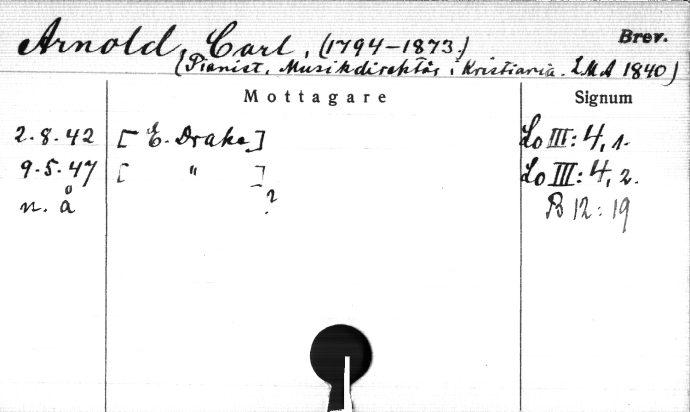 Arnold, Carl, (1794-1873.) Brev.
(Pianist, Musikdirektör i Kristiania. LMA 1840)
Mottagare Signum
2.8.42 [E. Drake] Lo III: 4, 1.
9.5.47 [ " ] Lo III: 4, 2.
n. å ? B 12: 19